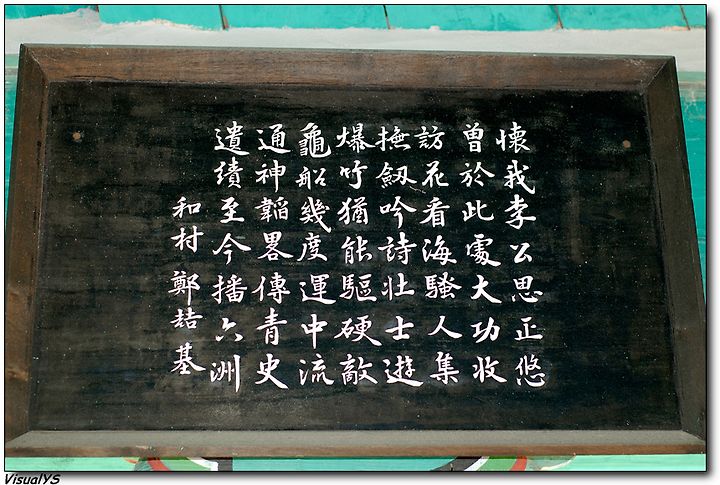 懷我李公思正悠
曾於此處大功收
訪花看海騷人集
撫劔吟詩壯士遊
爆竹猶能驅硬敵
龜船幾度運中流
通神韜畧傳青史
遺績至今播六洲
和村 鄭喆基
VisualYS